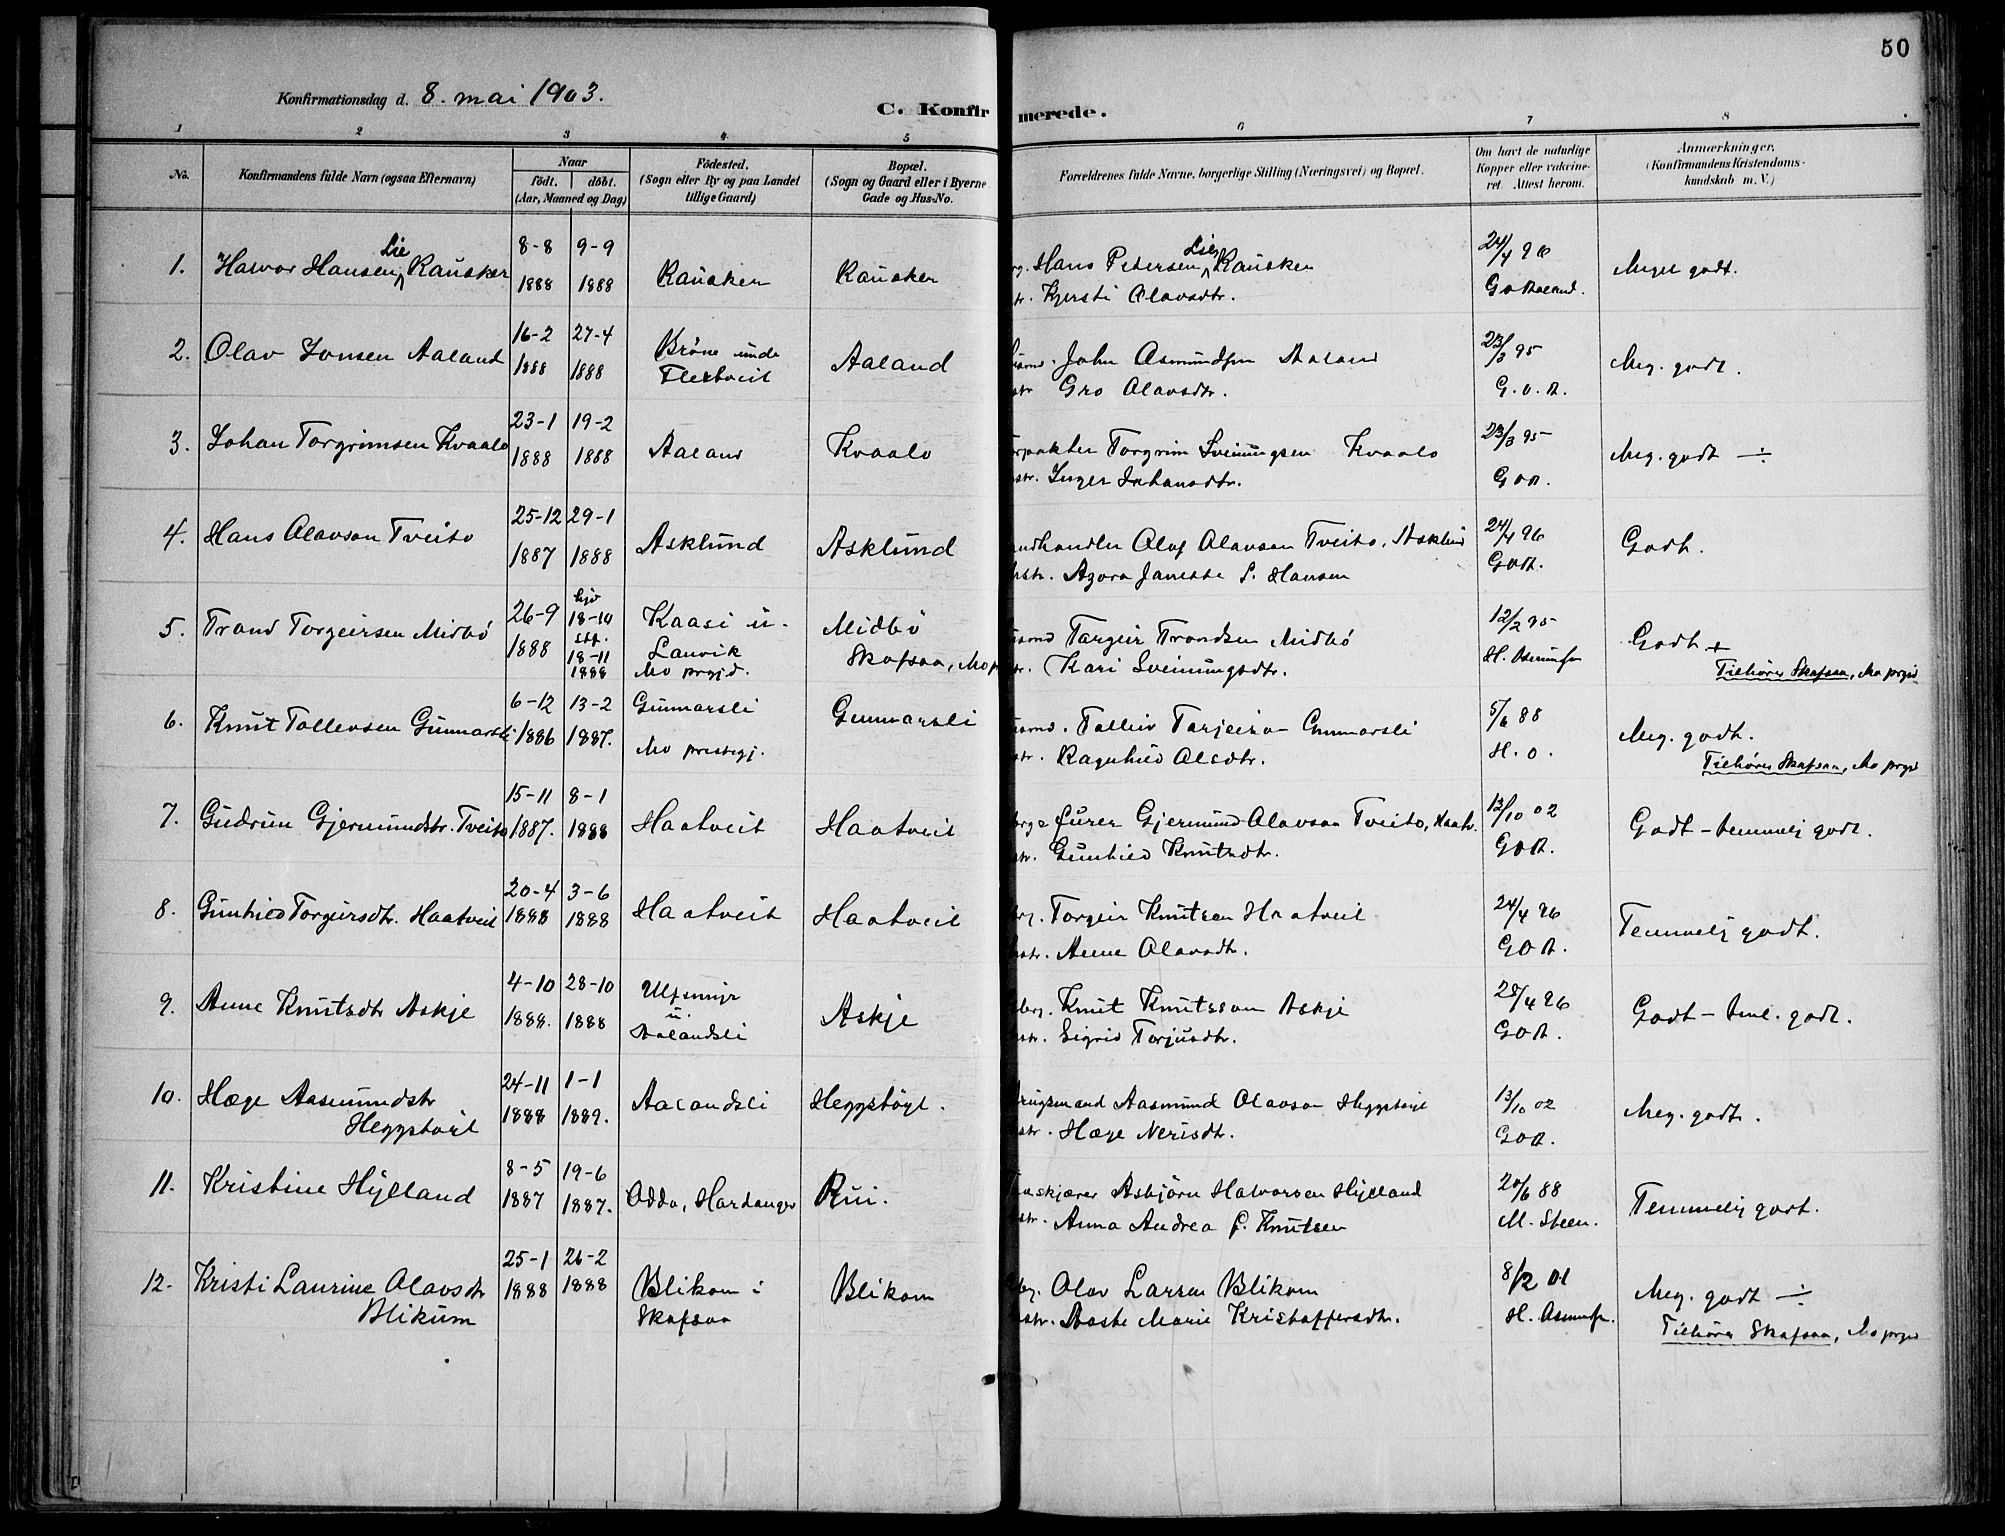 50
Konfirmationsdag d. 8. mai 1903.
C. Konfirmerede.
1 2 3 4 5 6 7 8
No.
Konfirmandens fulde Navn (ogsaa Efternavn)
Naar
födt. döbt.
(Aar, Maaned og Dag)
Födested.
(Sogn eller By og paa Landet
tillige Gaard)
Bopæl.
(Sogn og Gaard eller i Byerne
Gade og Hus-No.
Forældrenes fulde Navne, borgerlige Stilling (Næringsvei) og Bopæl.
Om havt de naturlige
Kopper eller vakcine-
ret Attest herom.
Anmærkninger,
(Konfirmandens Kristendoms-
kundskab m. V.)
1. Halvor Hansen Lie Rausker
8-8 1888
9-9 1888
Rausken
Rausken
Hans Petersen Lie, Rausken
Kjersti Olavsdtr.
24/4 96
Meget godt.
2. Olav Jonsen Aaland
16-2 1888
27-4 1888
Bröne unde
Aaland
John Asmundsen Aaland
str. Gro Olavsdtr.
23/3 95
G. o. A.
Meg. godt.
3. Johan Torgrimsen Kvaalo
23-1 1888
19-2 1888
Aaland
Kvaalo
Torgrim Sveinungsen Kvaalo
str. Inger Johansdtr.
23/3 95
GOA.
Meg. godt ÷
4. Hans Olavson Tveito
25-12 1887
29-1 1888
Asklund
Asklund
andhandler Olaf Olavson Tveito, Asklund
str. Azora Janette f. Hansen
24/4 96
GOA.
Godt.
5. Trond Torgeirsen Midbö
26-9 1888
hjd 18-10
stf.
18-11 1888
Kaasi u.
Lanvik
Mo prgjd.
Midbö
Skafsaa, Mo p
Targeir Trondsen Midbö
Kari Sveinungsdtr.
12/2 95
Godt +
Tilhörer Skafsaa, Mo prgjd
6. Knut Tollevsen Gunnarsli
6-12 1886
13-2 1887.
Gunnarsli
Mo prestegj.
Gunnarsli
Talleiv Tarjeison Gunnarsli
str. Ragnhild Olsdtr.
5/6 88
H. O.
Meg. godt.
Tilhörer Skafsaa, Mo prgjd
7. Gudrun Gjermundstr. Tveito
15-11 1887.
8-1 1888
Haatveit
Haatveit
Gjermund Olavson Tveito, Haatv.
str. Gunhild Knutsdtr.
13/10 02
GOA.
Godt - temmelig godt.
8. Gunhild Torgeirsdtr. Haatveit
20-4 1888
3-6 1888
Haatveit
Haatveit
Torgeir Knutsen Haatveit
str. Anne Olavsdtr.
24/4 96
GOA.
Temmelig godt.
9. Anne Knutsdtr Askje
4-10 1888.
28-10 1888
u.
Aalandsli
Askje
Knut Knutsson Askje
str. Sigrid Torjusdtr.
28/4 96
GOA.
Godt - tml. godt.
10. Hæge Aasmundstr
Heggtveit
24-11 1888
1-1 1889.
Aalandsli
Heggstöyl.
Brugsmand Aasmund Olavson Heggstöyl
str. Hæge Nerisdtr.
13/10 02
GOA.
Meg. godt.
11. Kristine Hylland
8-5 1887
19-6 1887.
Odda, Hardanger
Rui.
Asbjörn Halvorsen Hylland
str. Anna Andrea f. Knutsen
20/6 88
M. Steen.
Temmelig godt.
12. Kristi Laurine Olavsdtr
Blikum
25-1 1888
26-2 1888
Blikom i
Skafsaa
Blikom
Olav Larsen Blikom
str. Aaste Marie Kristoffersdtr.
8/2 01
Meg. godt ÷
Tilhörer Skafsaa, Mo prgjd